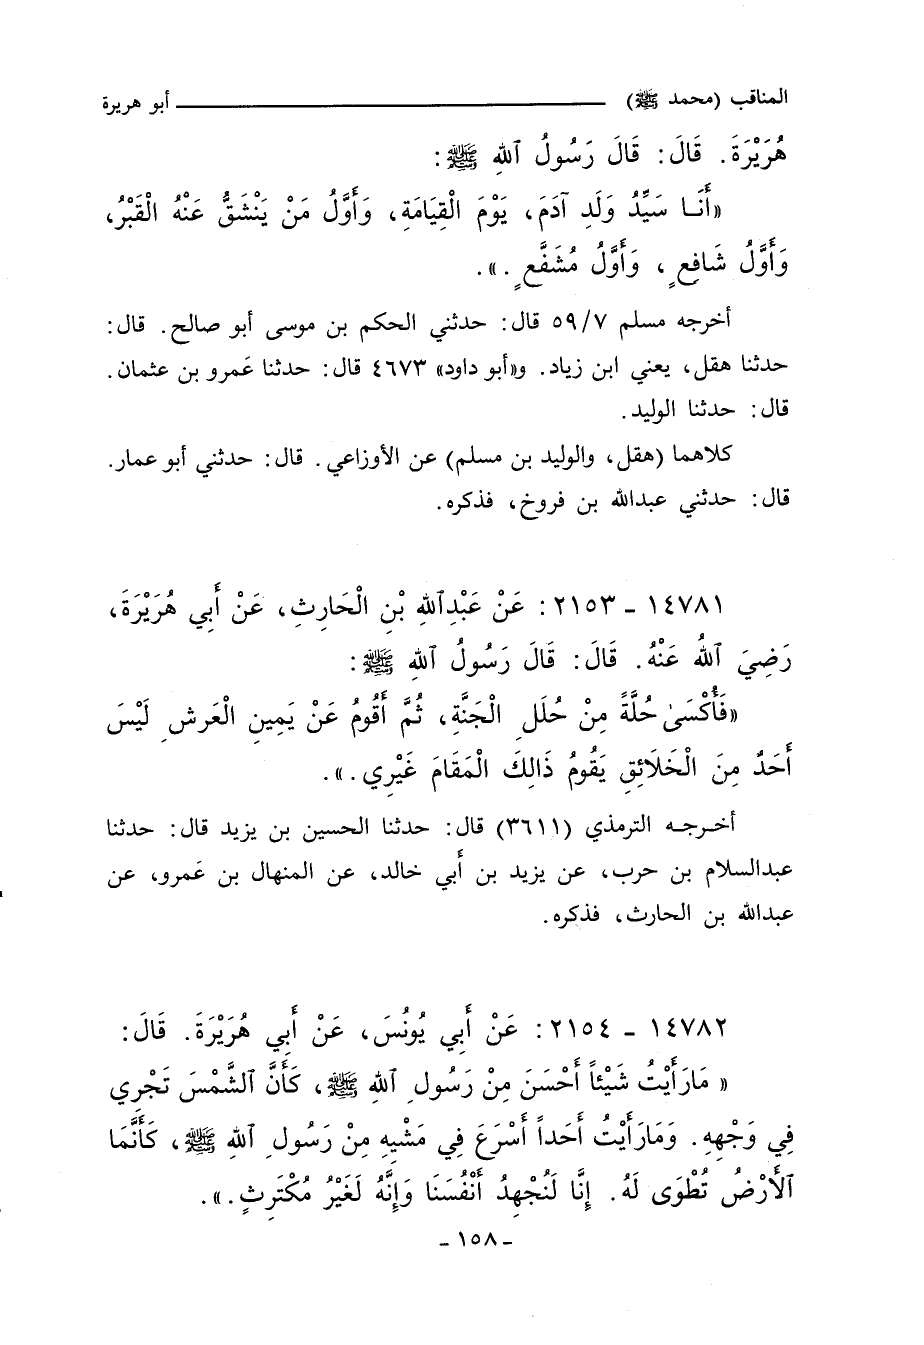 المناقب (محمد ﷺ) أبو هريرة
هُرَيْرَةَ. قَالَ: قَالَ رَسُولُ ٱللهِ ﷺ:
«أَنَا سَيِّدُ وَلَدِ آدَمَ، يَوْمَ الْقِيَامَةِ، وَأَوَّلُ مَنْ يَنْشَقُّ عَنْهُ الْقَبْرُ،
وَأَوَّلُ شَافِعٍ، وَأَوَّلُ مُشَفَّعٍ.».
أخرجه مسلم ٥٩/٧ قال: حدثني الحكم بن موسى أبو صالح. قال:
حدثنا هقل، يعني ابن زياد. و«أبو داود» ٤٦٧٣ قال: حدثنا عَمرو بن عثمان.
قال: حدثنا الوليد.
كلاهما (هقل، والوليد بن مسلم) عن الأوزاعي. قال: حدثني أبو عمار.
قال: حدثني عبدالله بن فروخ، فذكره.
١٤٧٨١ - ٢١٥٣: عَنْ عَبْدِٱللهِ بْنِ الْحَارِثِ، عَنْ أَبِي هُرَيْرَةَ،
رَضِيَ ٱللهُ عَنْهُ. قَالَ: قَالَ رَسُولُ ٱللهِ ﷺ:
«فَأُكْسَىٰ حُلَّةً مِنْ حُلَلِ الْجَنَّةِ، ثُمَّ أَقُومُ عَنْ يَمِينِ الْعَرشِ لَيْسَ
أَحَدٌ مِنَ الْخَلَائِقِ يَقُومُ ذَالِكَ الْمَقَامَ غَيْرِي.».
أخرجه الترمذي (٣٦١١) قال: حدثنا الحسين بن يزيد قال: حدثنا
عبدالسلام بن حرب، عن يزيد بن أَبي خالد، عن المنهال بن عَمرو، عن
عبدالله بن الحارث، فذكره.
١٤٧٨٢ - ٢١٥٤: عَنْ أَبِي يُونُسَ، عَنْ أَبِي هُرَيْرَةَ. قَالَ:
« مَارَأَيْتُ شَيْئاً أَحْسَنَ مِنْ رَسُولِ ٱللهِ ﷺ، كَأَنَّ ٱلشَّمْسَ تَجْرِي
فِي وَجْهِهِ. وَمَارَأَيْتُ أَحَداً أَسْرَعَ فِي مَشْيِهِ مِنْ رَسُولِ ٱللهِ ﷺ، كَأَنَّمَا
ٱلأَرْضُ تُطْوَى لَهُ. إِنَّا لَنُجْهِدُ أَنْفُسَنَا وَإِنَّهُ لَغَيْرُ مُكْتَرِثٍ.».
- ١٥٨ -